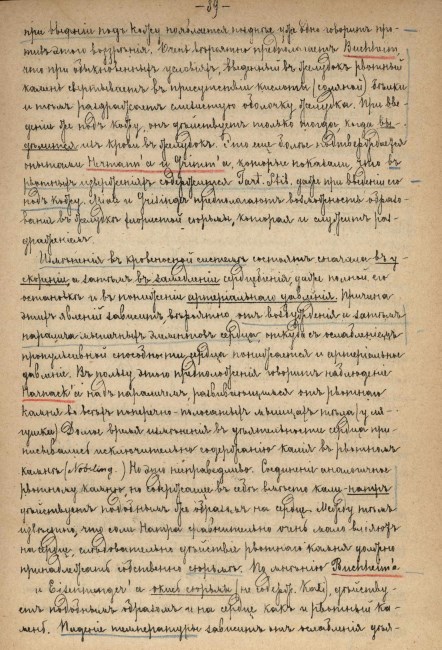 - 59 -
при введеніи подъ кожу появляется поздне уже одно говоритъ про-
тивъ этого воззрѣнія. Очень вѣроятно предполагаетъ Buchheim,
что при обыкновенныхъ условіяхъ, введенный въ желудокъ рвотный
камень свертываетъ въ присутствіи кислоты (соляной) бѣлки
и тѣмъ раздражаетъ слизистую оболочку желудка. При вве-
деніи же подъ кожу, онъ дѣйствуетъ только тогда когда вы-
дѣлится изъ крови въ желудокъ. Это еще болѣе подтверждается
опытами Hermann'a и Grimm'a, которые показали, что въ
рвотныхъ изверженіяхъ содержится Tart. Stib. даже при введеніи его
подъ кожу. и предполагаютъ возможность образо-
ванія въ желудкѣ хлористой сюрьмы, которая и служитъ раз-
дражителемъ.
Измѣненія въ кровеносной системѣ состоятъ сначала въ у-
скореніи, а затѣмъ въ замедленіи сердцебіенія, даже полной его
остановкѣ и въ пониженіи артеріальнаго давленія. Причина
этихъ явленій зависитъ, вѣроятно, отъ возбужденія и затѣмъ
паралича мышечныхъ элементовъ сердца съ ослабленіемъ
пропульсивной способности сердца понижается и артеріальное
давленіе. Въ пользу этого предположенія говоритъ наблюденіе
Harnack'a надъ параличемъ развивающимся отъ рвотнаго
камня во всѣхъ поперечно-полосатыхъ мышцахъ тѣла (у ля-
гушки). Долгое время измѣненія въ дѣятельности сердца при-
писывались исключительно содержанію калія въ рвотномъ
камнѣ (Nobiling.) Но это несправедливо. Соединенія аналогичное
рвотному камню, но содержащее въ себѣ вмѣсто кали - натръ
дѣйствуетъ подобнымъ же образомъ на сердце. Между тѣмъ
извѣстно, что соли Натра сравнительно очень мало вліяютъ
на сердце, слѣдовательно дѣйствіе рвотнаго камня должно
принадлежать собственно сюрьмѣ. По мнѣнію Buchheim'a
и Eisenmenger'a окись сюрьмы (не содерж. Kali), дѣйству-
етъ подобнымъ образомъ и на сердце какъ и рвотный ка-
мень. Паденіе температуры зависитъ отъ ослабленія дѣя-